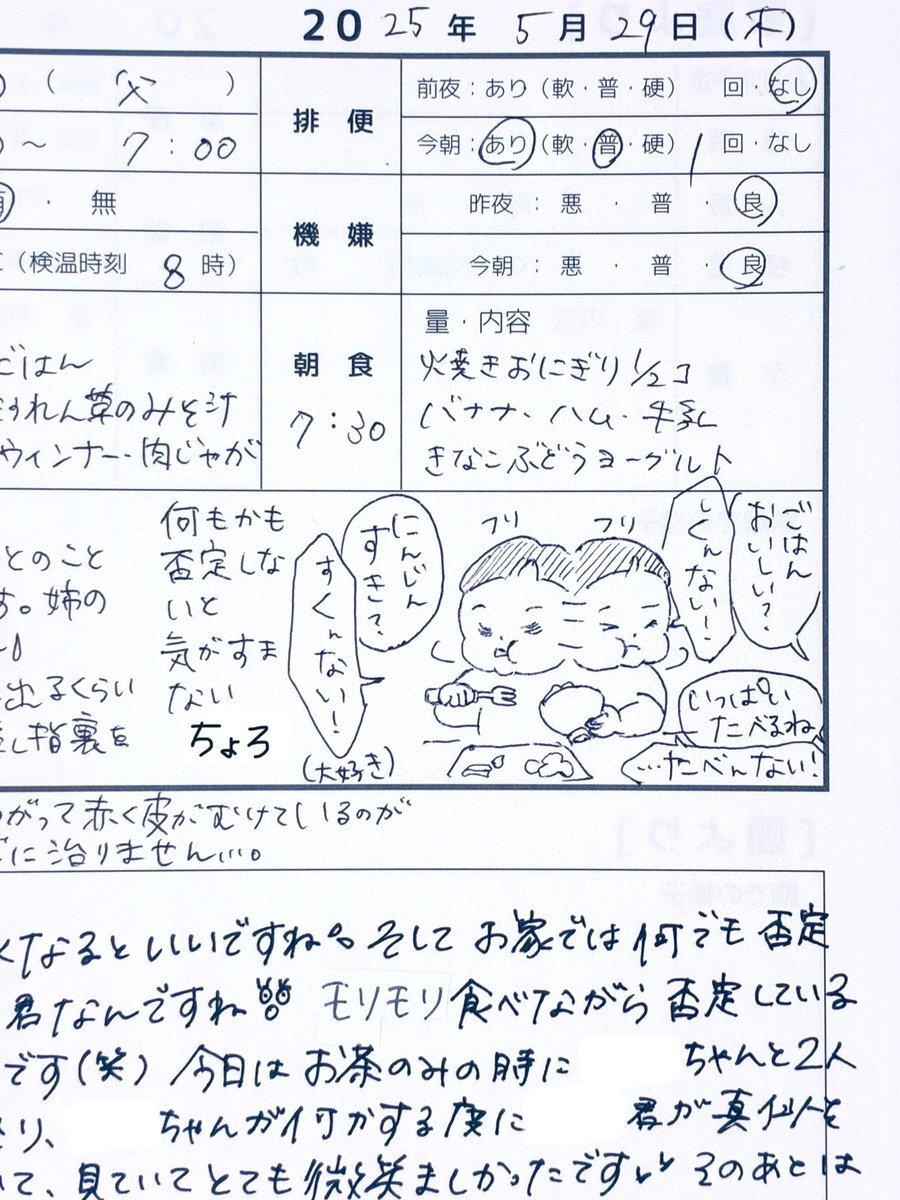 2025年 5月29日(木)
(父)
排便
前夜:あり(軟・普・硬) 回・なし
~ 7:00
今朝:あり(軟・普・硬) 1回・なし
・無
機嫌
昨夜:悪・普・良
(検温時刻 8時)
今朝:悪・普・良
朝食
7:30
量・内容
火焼きおにぎり1/2コ
バナナ・ハム・牛乳
きなこぶどうヨーグルト
ごはん
うれん草のみそ汁
ウィンナー・肉じゃが
とのこと
す。姉の
出るくらい
し指裏を
何もかも
否定しな
いと
気がすま
ない
ちょろ
にんじん
すき?
すくんない!
(大好き)
フリ フリ
ごはん
おいしい?
しくんない!
いっぱい
たべるね
…たべんない!
がって赤く皮がむけてしまいるのが
に治りません…。
くなるといいですね。そして お家では何でも否定
君なんですね モリモリ食べながら否定している
です(笑) 今日はお茶のみの時に ちゃんと2人
り、 ちゃんが何かする度に 君が真似を
て、見ていてとても微笑ましかったです そのあとは